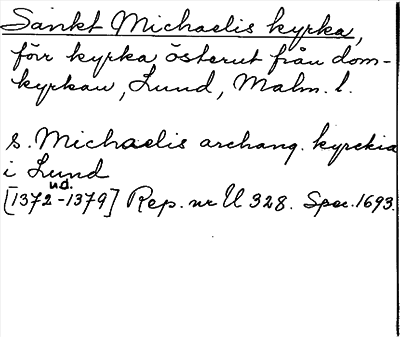 Sankt Michaelis kyrka,
förr kyrka österut från dom-
kyrkan, Lund, Malm. l.
S. Michaelis archang. kyrckia
i Lund
u.d.
[1372-1379] Rep. nr U 328. Spec. 1693.